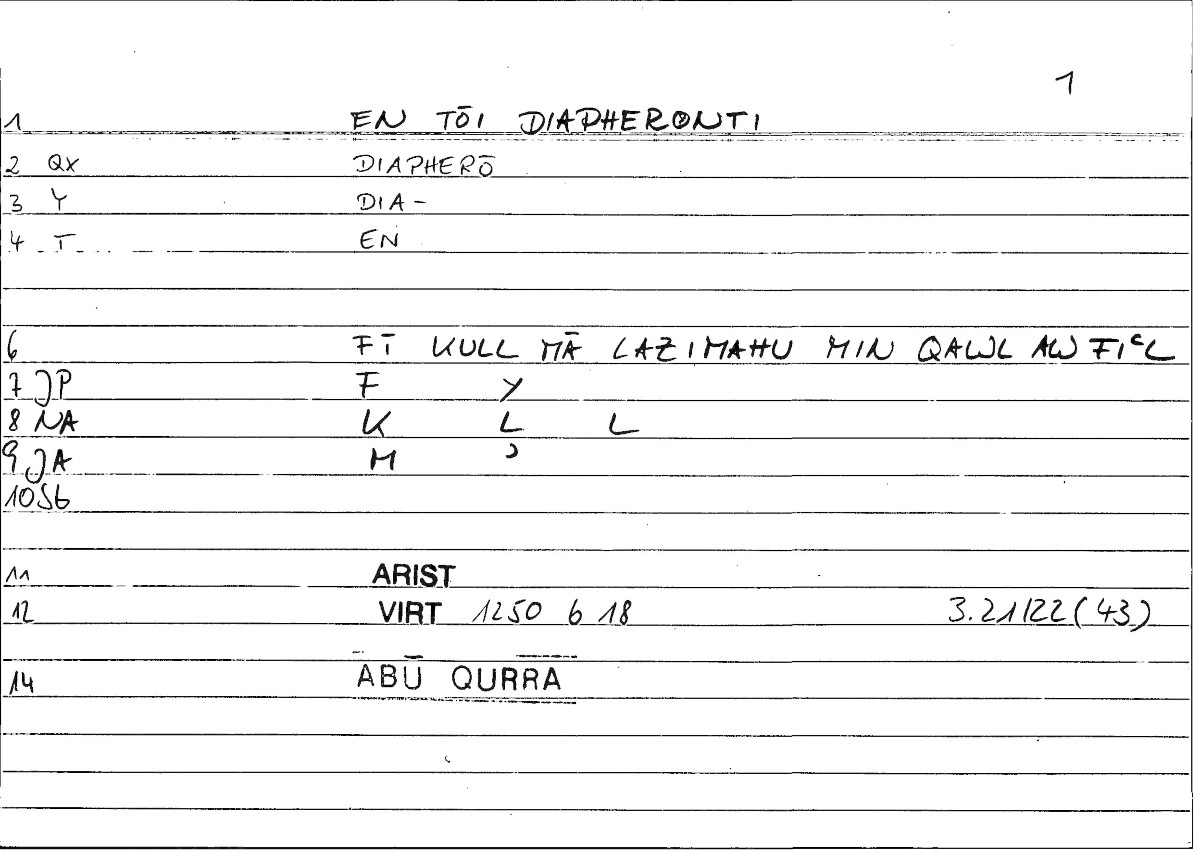 1
1 EN TŌI DIAPHERONTI
2 QX DIAPHERŌ
3 Y DIA-
4 T EN
6 FĪ KULL MĀ LAZIMAHU MIN QAWL AW FIᶜL
7 JP F Y
8 NA K L L
9 JA M ʾ
10 S6
11 ARIST
12 VIRT 1250 6 18 3.21/22(43)
14 ABŪ QURRA